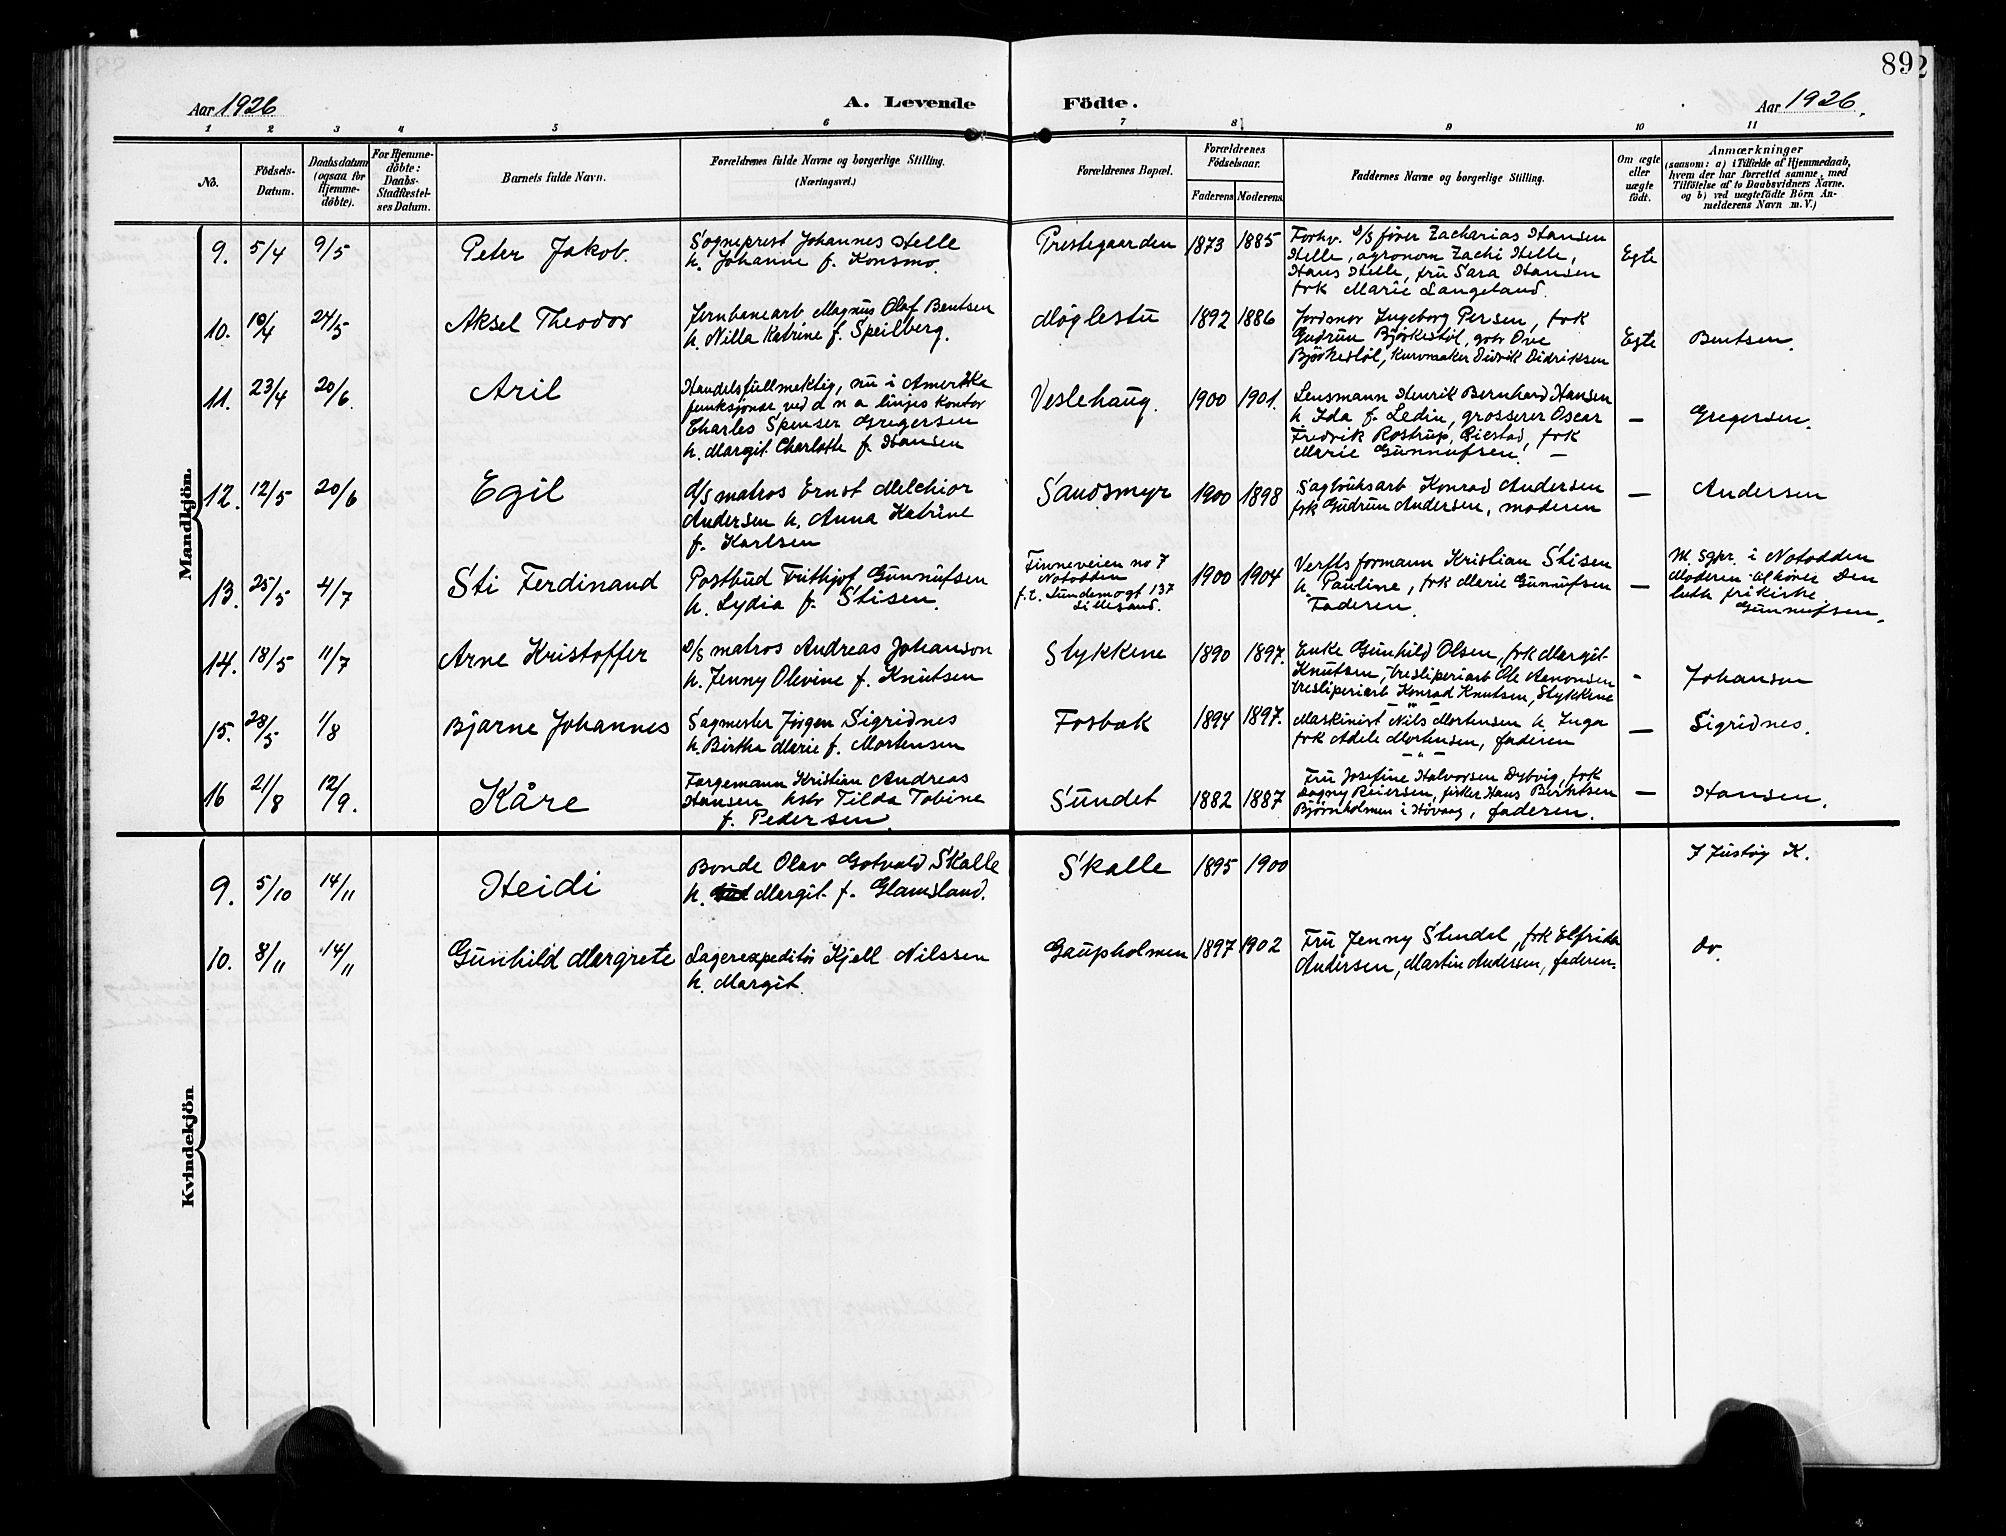 89
Aar 1926
A. Levende Födte.
Aar 1926.
1 2 3 4 5 6 7 8 9 10 11
No.
Födsels-Datum.
Daabsdatum (ogsaa for Hjemme-döbte).
For Hjemme-döbte: Daabs-Stadfæstel-ses Datum.
Barnets fulde Navn.
Forældrenes fulde Navne og borgerlige Stilling.
(Næringsvei.)
Forældrenes Bopæl.
Forældrenes Födselsaar.
Faderens. Moderens.
Faddernes Navne og borgerlige Stilling.
Om ægte eller uægte födt.
Anmærkninger
(saasom: a) i Tilfælde af Hjemmedaab,
hvem der har forrettet samme, med
Tilföielse af to Daabsvidners Navne.
og b) ved uægtefödte Börn An-
melderens Navn m. V.)
Mandkjön.
9. 5/4 9/5 Peter Jakob.
Sogneprest Johannes Helle
h. Johanne f. Konsmo.
Prestegaarden 1873 1885
Forhv. D/S fører Zacharias Hansen
Helle, agronom Zachi Helle,
Hans Helle, fru Sara Hansen
frk Marie Langeland.
Egte
10. 19/4 24/5 Aksel Theodor
Jernbanearb Magnus Olaf Bentsen
h. Nilla Katrine f. Speilberg.
Møglestu 1892 1886
Jordmor Ingeborg Persen, frk
Gudrun Bjørkestøl, gbr Ove
Bjørkestøl, kurvmaker Didrik Didriksen
Egte Bentsen.
11. 23/4 20/6. Aril
Handelsfullmektig, nu i Amerika
funksjonær ved d n a linjes kontor
Charles Spenser Gregersen
h. Margit Charlotte f. Hansen
Veslehaug. 1900 1901.
Lensmann Henrik Bernhard Hansen
h. Ida f. Ledin, grosserer Oscar
Fredrik Rostrup, frk
Marie Gunnufsen. —
— Gregersen.
12. 12/5 20/6 Egil
D/S matros Ernst Melchior
Andersen h. Anna Katrine
f. Karlsen
Sandsmyr 1900 1898
Sagbruksarb Konrad Andersen
frk Gudrun Andersen, moderen
— Andersen
13. 25/5 4/7 Sti Ferdinand
Postbud Frithjof Gunnufsen
h. Lydia f. Stisen.
Tinneveien no 7
Notodden
f.t. Sundemogt 137
Lillesand.
1900 1904
Verftsformann Kristian Stisen
h. Pauline, frk Marie Gunnufsen
Faderen.
—
M. Sgpr. i Notodden
Moderen tilhører Den
luth frikirke
Gunnufsen.
14. 18/5 11/7 Arne Kristoffer
D/S matros Andreas Johanson
h. Jenny Olevine f. Knutsen
Stykkene 1890 1897.
Enke Gunhild Olsen, frk Margit
Knutsen, tresliperiarb Ole Aanonsen
tresliperiarb Konrad Knutsen, Stykkene
- Johansen
15. 28/5 1/8 Bjarne Johannes
Sagmester Jørgen Sigridnes
h. Birthe Marie f. Mortensen
Fosbæk 1894 1897.
Maskinist Nils Mortensen h. Inga
frk Adele Mortensen, faderen
— Sigridnes.
16 21/8 12/9. Kåre
Færgemann Kristian Andreas
Hansen hstr Tilda Tobine
f. Pedersen.
Sundet 1882 1887
Fru Josefine Halvorsen Dybvig, frk
Dagny Reiersen, fisker Hans Berntsen
Bjørnholmen i Høvaag, faderen.
— Hansen.
Kvindekjön
9. 5/10 14/11 Heidi
Bonde Olav Gotvald Skalle
h. Margit f. Glamsland.
Skalle 1895 1900
I Justøy K.
10. 8/11 14/11 Gunhild Margrete
Lagerexpeditør Kjell Nilssen
h. Margit.
Gaupholmen 1897 1902
Fru Jenny Stendal frk Elfrida
Andersen, Martin Andersen, faderen.
do.